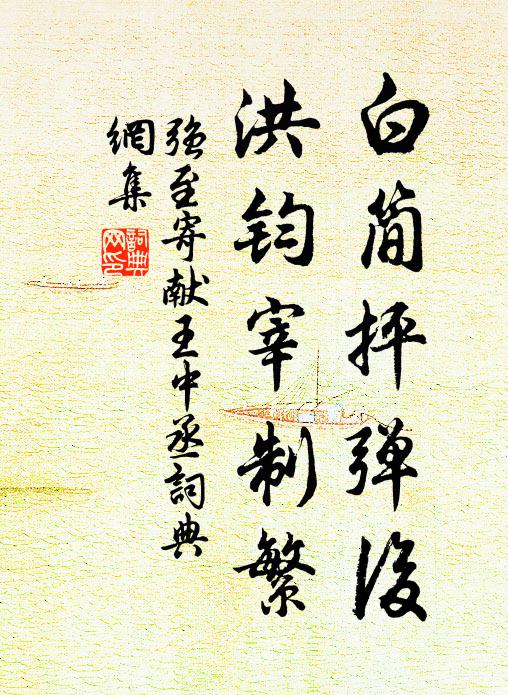 白简抨弹后
洪钧宰制繁
强至寄献王中丞詞典
網集
詞典
网印